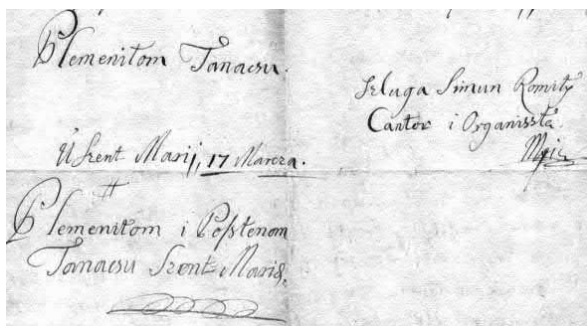 Plemenitom Tanacsu.
Szluga Simun Romity
Cantor i Organissta
U Szent Marij, 17 Marcza.
Plemenitom i Postenom
Tanacsu Szent Marie,